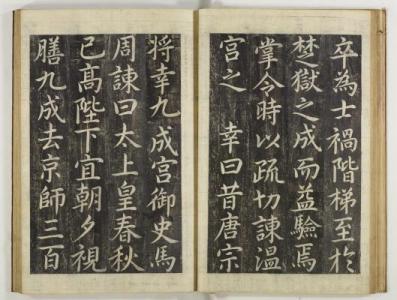 卒為士禍階梯至於
楚獄之成而益驗焉
掌令時以疏切諫溫
宮之　幸曰昔唐宗
将幸九成宮御史馬
周諫曰太上皇春秋
已高陛下宜朝夕視
膳九成去京師三百